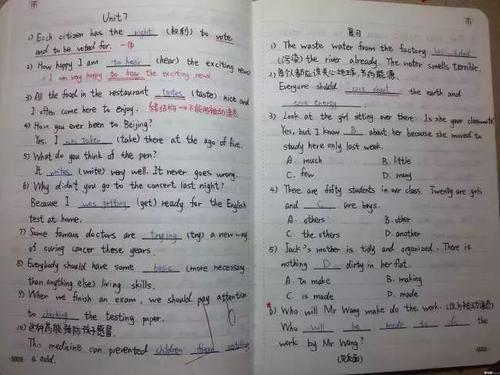 Unit 7
1) Each citizen has the right (权利) to vote
and to be voted for.
2) How happy I am to hear (hear) the exciting news
= I am very happy to hear the exciting news
3) All the food in the restaurant tastes (taste) nice and
I often come here to enjoy.
4) Have you ever been to Beijing?
Yes. I was taken (take) there at the age of five.
5) What do you think of the pen?
It writes (write) very well. It never goes wrong.
6) Why didn't you go to the concert last night?
Because I was getting (get) ready for the English
test at home.
7) Some famous doctors are trying (try) a new way
of curing cancer these years.
8) Everybody should have some basic (more necessary
than anything else) living skills.
9) When we finish an exam, we should pay attention
to checking the testing paper.
10) 这种药能预防孩子感冒.
This medicine can prevented children from catching
a cold.
复习
1) The waste water from the factory has polluted
(污染) the river already. The water smells terrible.
2) 每个人都应该关心地球,节约能源.
Everyone should care about the earth and
save energy
3) Look at the girl sitting over there. Is she your classmate?
Yes, but I know B about her because she moved to
study here only last week.
A. much B. little
C. few D. many
4) There are fifty students in our class. Twenty are girls
and C are boys.
A. others B. other
C. the others D. another
5) Jack's mother is tidy and organized. There is
nothing D dirty in her flat.
A. to make B. making
C. is made D. made
6) Who will Mr Wang make do the work. (改为被动语态)
Who will be made to do the
work by Mr Wang?